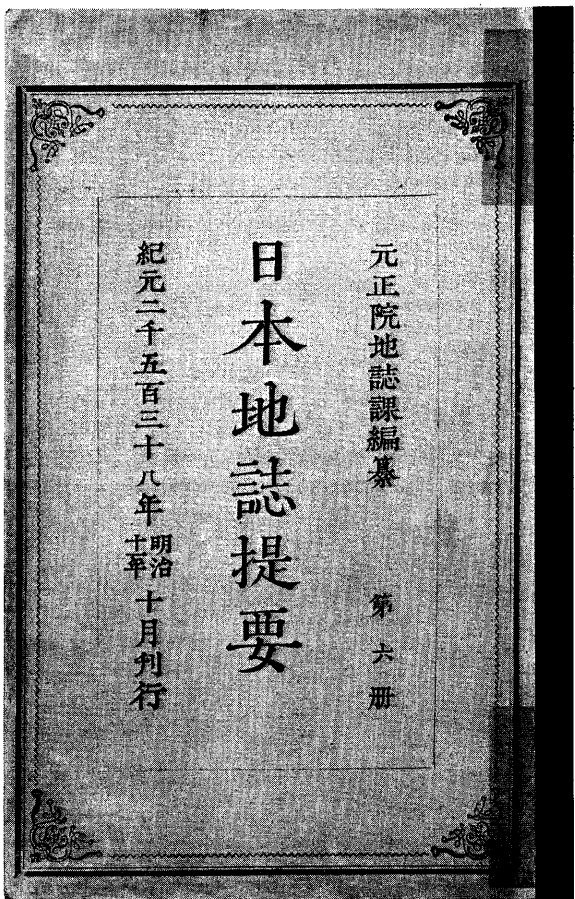 元正院地誌課編纂　第六册
日本地誌提要
紀元二千五百三十八年明治十一年十月刊行